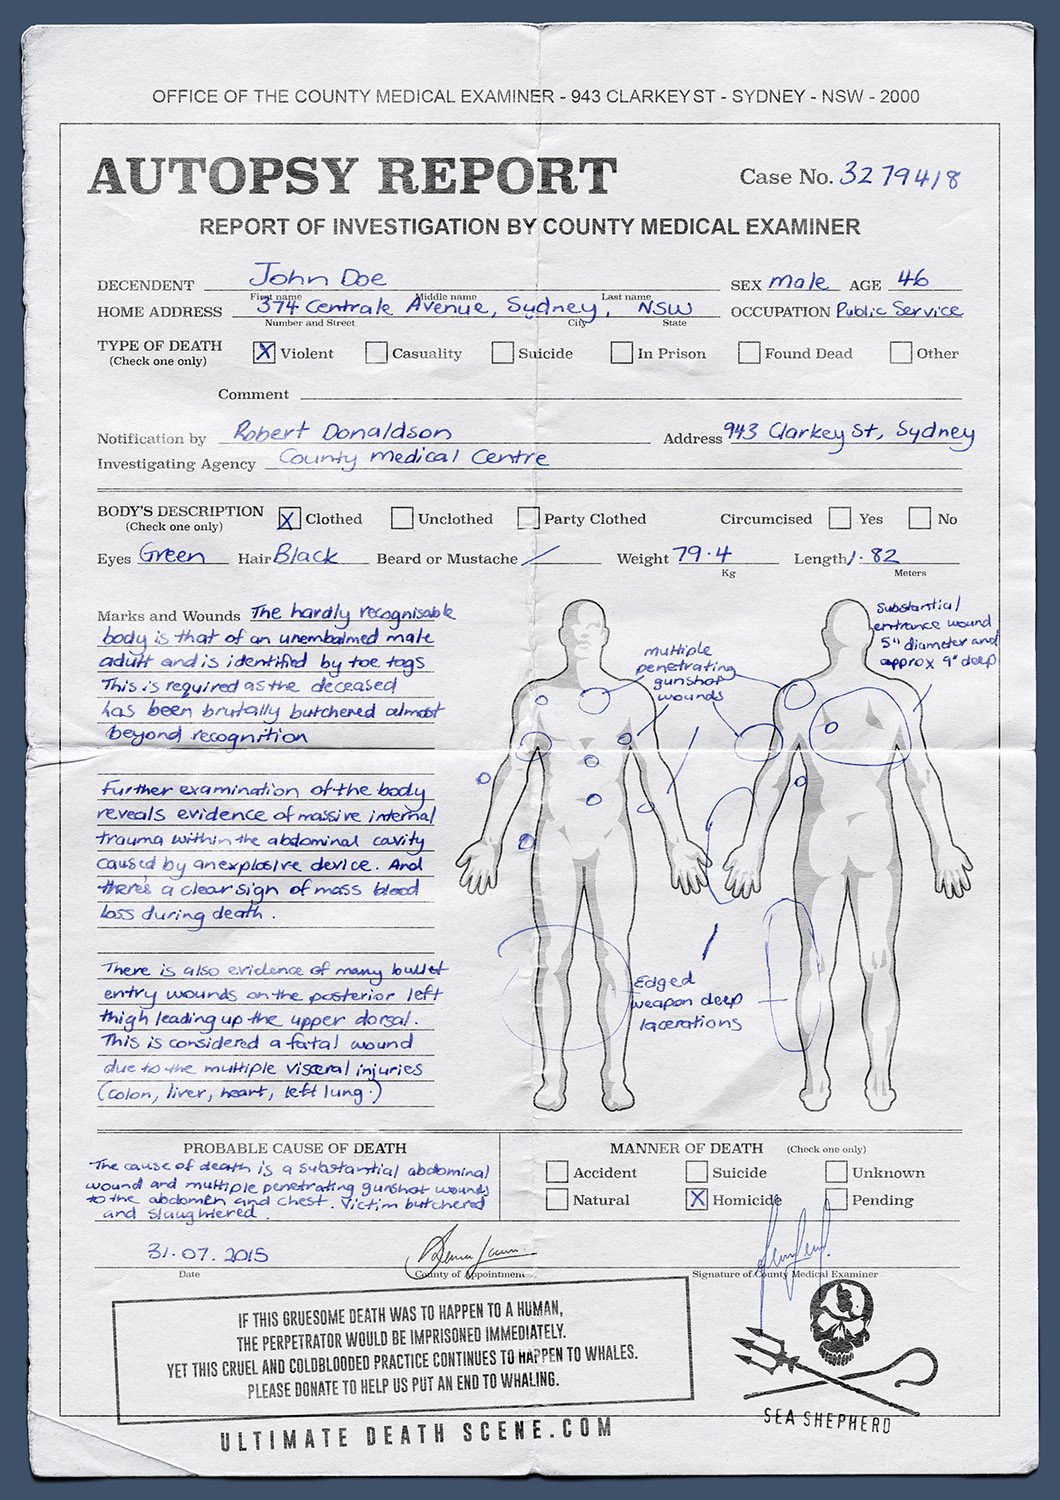 OFFICE OF THE COUNTY MEDICAL EXAMINER - 943 CLARKEY ST - SYDNEY - NSW - 2000
AUTOPSY REPORT
Case No. 3279418
REPORT OF INVESTIGATION BY COUNTY MEDICAL EXAMINER
DECENDENT John Doe SEX male AGE 46
First name Middle name Last name
HOME ADDRESS 374 Centrale Avenue, Sydney, NSW OCCUPATION Public Service
Number and Street City State
TYPE OF DEATH X Violent Casuality Suicide In Prison Found Dead Other
(Check one only)
Comment
Notification by Robert Donaldson Address 943 Clarkey St, Sydney
Investigating Agency County Medical Centre
BODY'S DESCRIPTION X Clothed Unclothed Party Clothed Circumcised Yes No
(Check one only)
Eyes Green Hair Black Beard or Mustache / Weight 79.4 Length 1.82
Kg Meters
Marks and Wounds The hardly recognisable
body is that of an unembalmed male
adult and is identified by toe tags
This is required as the deceased
has been brutally butchered almost
beyond recognition
Further examination of the body
reveals evidence of massive internal
trauma within the abdominal cavity
caused by an explosive device. And
there's a clear sign of mass blood
loss during death.
There is also evidence of many bullet
entry wounds on the posterior left
thigh leading up the upper dorsal.
This is considered a fatal wound
due to the multiple visceral injuries
(colon, liver, heart, left lung.)
multiple
penetrating
gunshot
wounds
Substantial
entrance wound
5" diameter and
approx 9" deep
Edged
weapon deep
lacerations
PROBABLE CAUSE OF DEATH
The cause of death is a substantial abdominal
wound and multiple penetrating gunshot wounds
to the abdomen and chest. Victim butchered
and slaughtered.
MANNER OF DEATH (Check one only)
Accident Suicide Unknown
Natural X Homicide Pending
31.07.2015
Date County of Appointment Signature of County Medical Examiner
IF THIS GRUESOME DEATH WAS TO HAPPEN TO A HUMAN,
THE PERPETRATOR WOULD BE IMPRISONED IMMEDIATELY.
YET THIS CRUEL AND COLDBLOODED PRACTICE CONTINUES TO HAPPEN TO WHALES.
PLEASE DONATE TO HELP US PUT AN END TO WHALING.
SEA SHEPHERD
ULTIMATE DEATH SCENE.COM